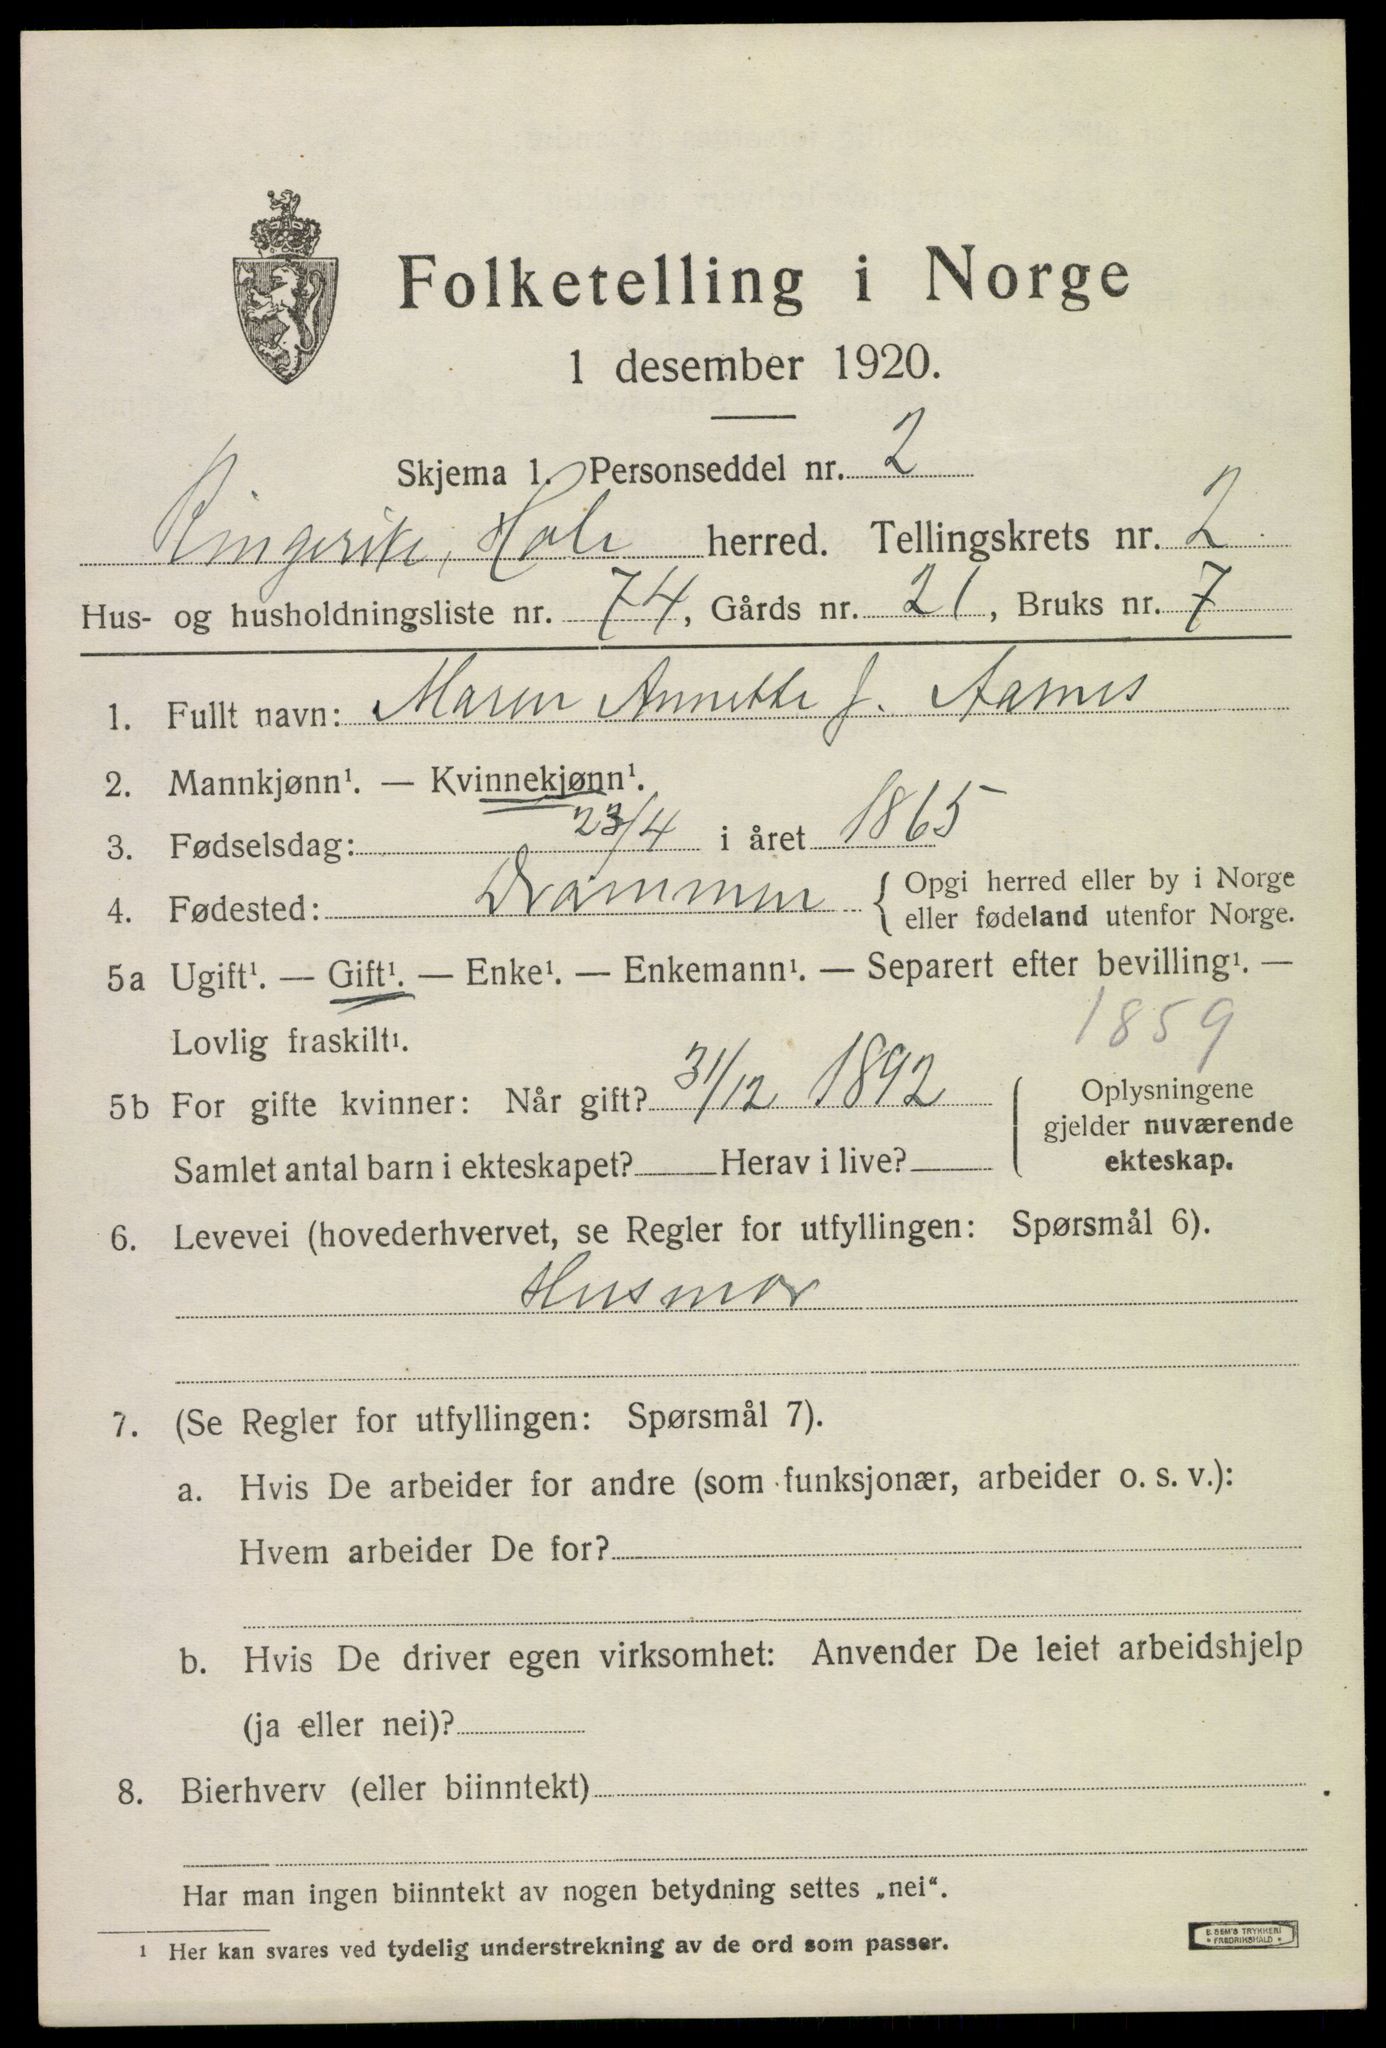 Folketelling i Norge
1 desember 1920.
Skjema 1. Personseddel nr. 2
Ringerike, Hole herred. Tellingskrets nr. 2
Hus- og husholdningsliste nr. 74, Gårds nr. 21, Bruks nr. 7
1. Fullt navn: Maren Annette J. Aasnes
2. Mannkjønn¹. — Kvinnekjønn¹.
3. Fødselsdag: 23/4 i året 1865
4. Fødested: Drammen { Opgi herred eller by i Norge
eller fødeland utenfor Norge.
5a Ugift¹. — Gift¹. — Enke¹. — Enkemann¹. — Separert efter bevilling¹. —
Lovlig fraskilt¹.
1859
5b For gifte kvinner: Når gift? 31/12 1892
Samlet antal barn i ekteskapet? Herav i live?
Oplysningene
gjelder nuværende
ekteskap.
6. Levevei (hovederhvervet, se Regler for utfyllingen: Spørsmål 6).
Husmor
7. (Se Regler for utfyllingen: Spørsmål 7).
a. Hvis De arbeider for andre (som funksjonær, arbeider o. s. v.):
Hvem arbeider De for?
b. Hvis De driver egen virksomhet: Anvender De leiet arbeidshjelp
(ja eller nei)?
8. Bierhverv (eller biinntekt)
Har man ingen biinntekt av nogen betydning settes „nei“.
¹ Her kan svares ved tydelig understrekning av de ord som passer.
E. SEM'S TRYKKERI
* FREDRIKSHALD *